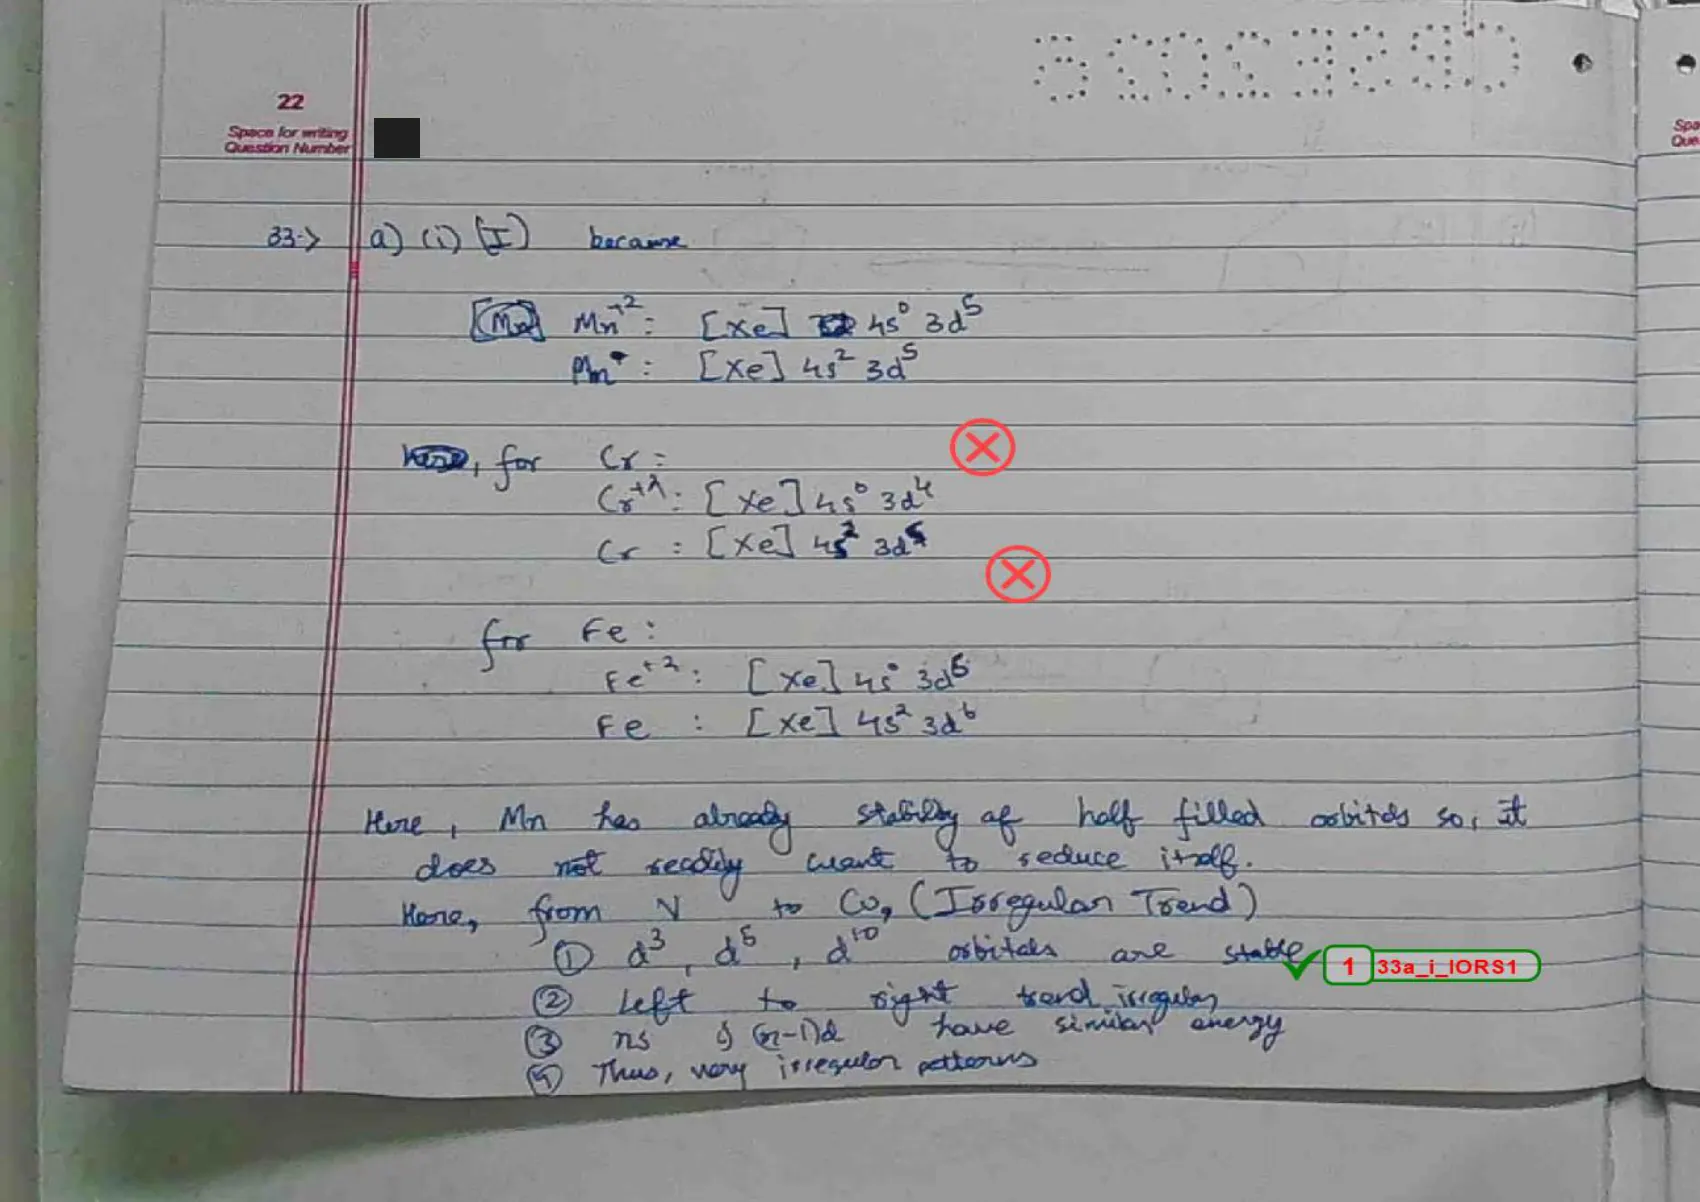 CBSE2025
22
Space for writing
Question Number
33->
a) (i) (I) because
[Mn] Mn+2: [Xe] 4s0 3d5
Mn : [Xe] 4s2 3d5
Here, for Cr :
Cr+2: [Xe] 4s0 3d4
Cr : [Xe] 4s2 3d4
for Fe :
Fe+2: [Xe] 4s0 3d6
Fe : [Xe] 4s2 3d6
Here, Mn has already stability of half filled orbitals so, it
does not readily want to reduce itself.
Here, from V to Cu, (Irregular Trend)
① d3, d5, d10 orbitals are stable
1 33a_i_IORS1
② Left to right trend irregular
③ ns & (n-1)d have similar energy
④ Thus, very irregular patterns
Spa
Que